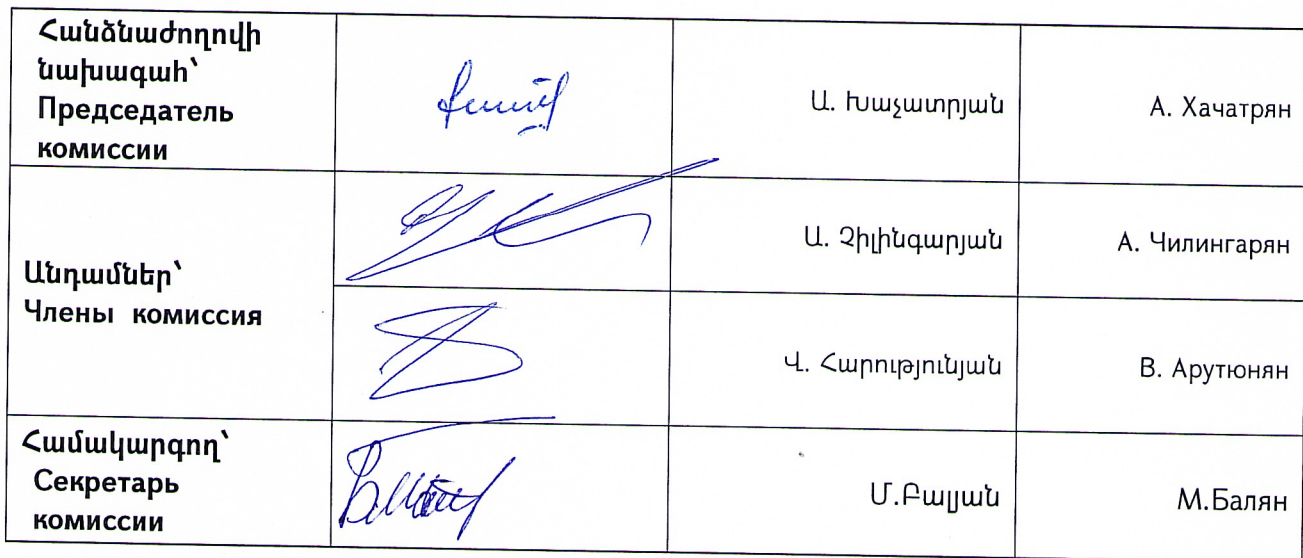 Հանձնաժողովի
նախագահ՝
Председатель
комиссии
Ա. Խաչատրյան
А. Хачатрян
Անդամներ՝
Члены комиссия
Ա. Չիլինգարյան
А. Чилингарян
Վ. Հարությունյան
В. Арутюнян
Համակարգող՝
Секретарь
комиссии
Մ.Բալյան
М.Балян